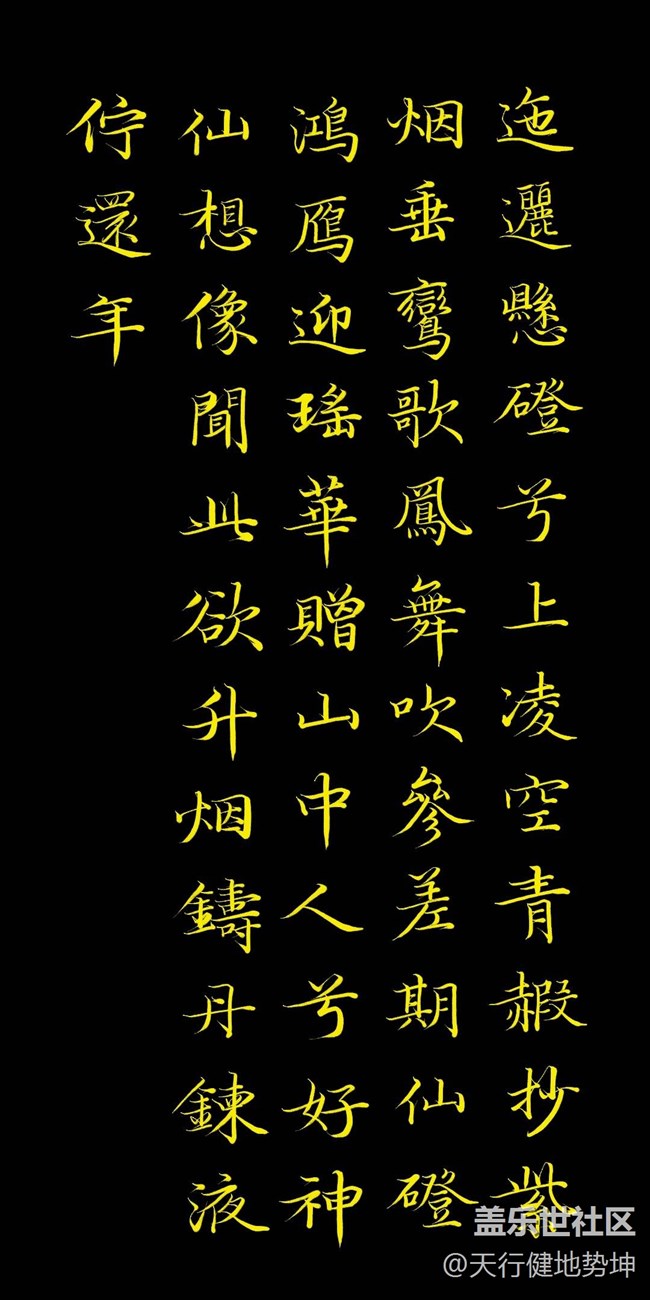 迤邐懸磴兮上凌空青赮抄紫
烟垂鸞歌鳳舞吹參差期仙磴
鴻鴈迎瑤華贈山中人兮好神
仙想像聞此欲升烟鑄丹鍊液
佇還年
盖乐世社区
@天行健地势坤